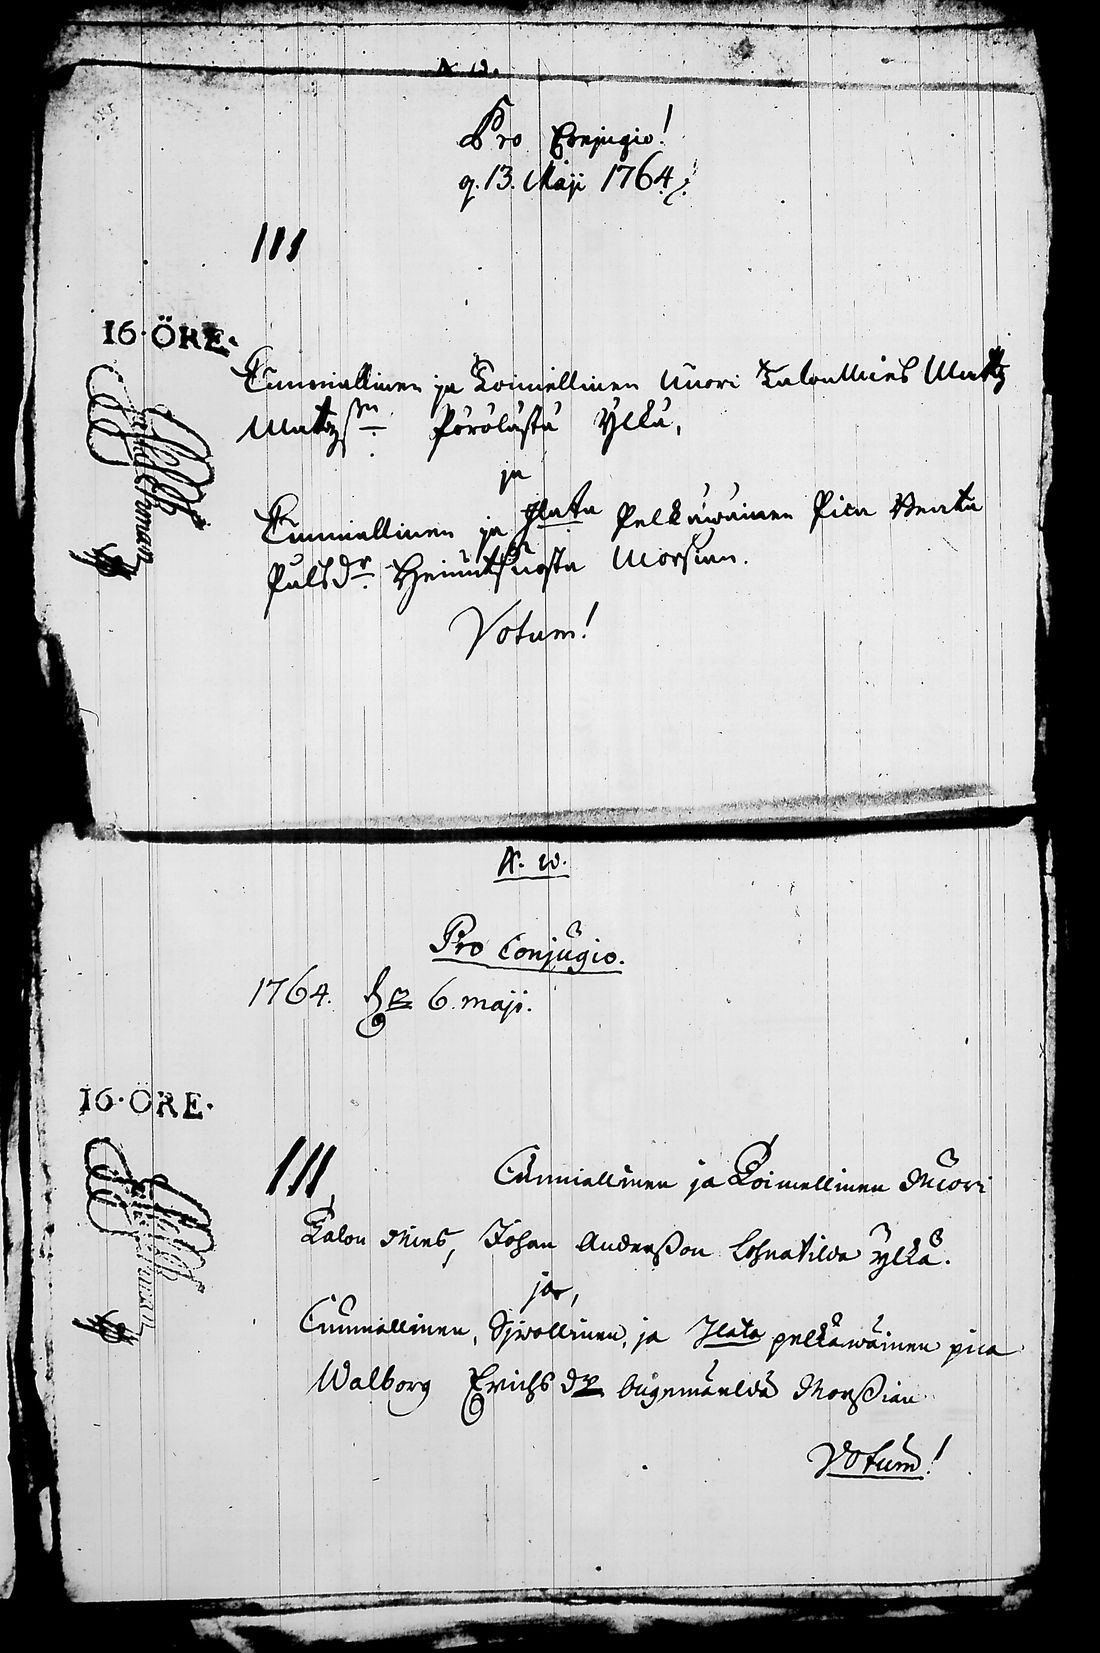 N. W.
Pro Conjugio!
q. 13. Maji 1764.
III
16·ÖRE·
Cunniallinen ja Koiniallinen nuori Talon Mies Matz
Matzsn Pörölästä Ylkä,
ja
Cunniallinen ja Jlata Pelkäwäinen Pica Beata
Påls dr Morsian.
Votum!
N. W.
Pro Conjugio.
1764. 6. maji.
16·ÖRE·
III Cunniallinen ja Koiniallinen Nuori
Talon Mies, Johan Anderßon Lohnatilda ylkä.
ja,
Cunniallinen, Sjwollinen, ja Jlata pelkäwäinen pica
Walborg Erichs dr Morßian
Votum!